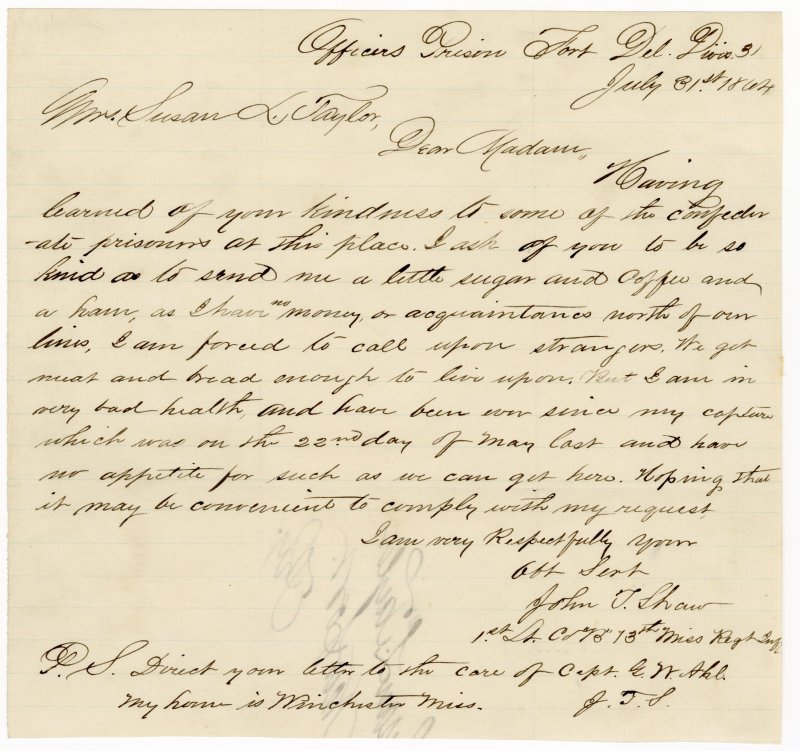 Officers Prison Fort Del. Divis. 3
July 31.st 1864
Mrs. Susan L. Taylor,
Dear Madam,
Having
learned of your kindness to some of the confeder
-ate prisoners at this place. I ask of you to be so
kind as to send me a little sugar and coffee and
a ham, as I have no money, or acquaintances north of our
lines, I am forced to call upon strangers. We get
meat and bread enough to live upon. But I am in
very bad health, and have been ever since my capture
which was on the 22nd day of May last and have
no appetite for such as we can get here. Hoping that
it may be convenient to comply with my request.
I am very Respectfully your
Obt Sert
John T. Shaw
1st Lt. Co "B" 13th Miss Regt Inf
P. S. Direct your letter to the care of Capt. G. W. Ahl.
My home is Winchester Miss.
J. T. S.